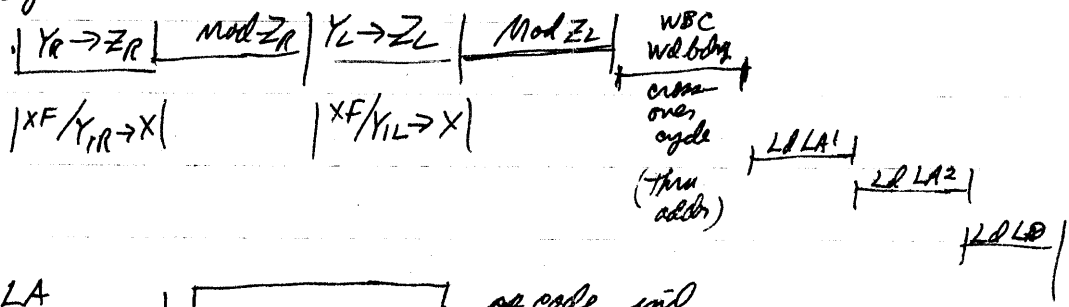 Y_R → Z_R | Mod Z_R | Y_L → Z_L | Mod Z_L | WBC
Wd bdry
|XF/Y_1R → X| |XF/Y_1L → X| cross-
over
cycle
(thru
addr)
Ld LA1
Ld LA2
Ld LB
LA op code ind